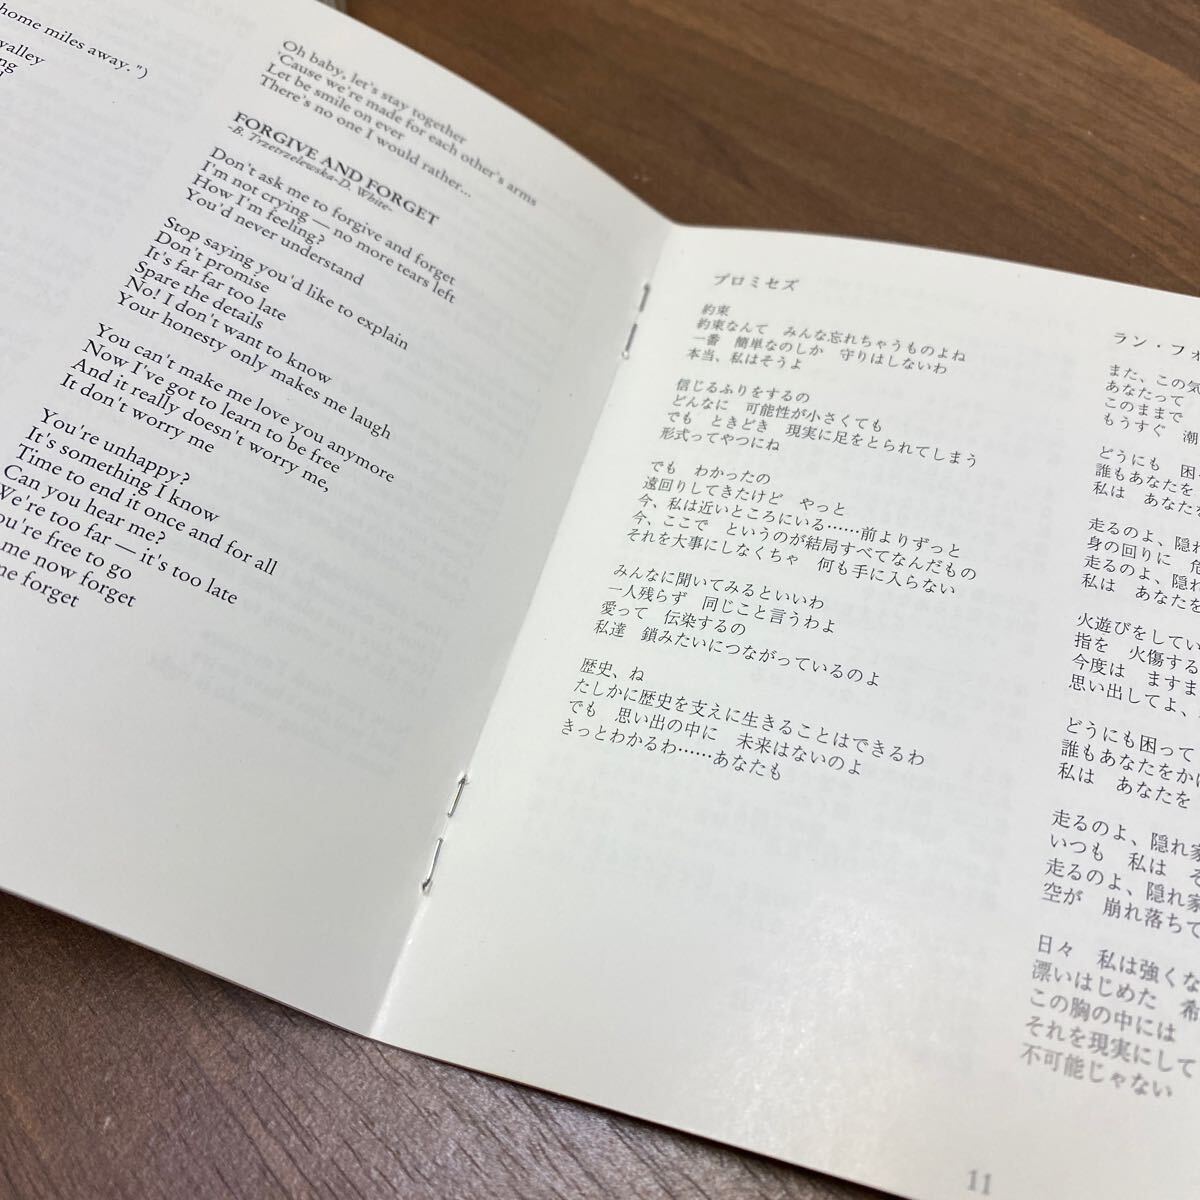 home miles away. ")
valley
Oh baby, let's stay together
'Cause we're made for each other's arms
Let be smile on ever
There's no one I would rather...
FORGIVE AND FORGET
-B. Trzetrzelewska-D. White-
Don't ask me to forgive and forget
I'm not crying — no more tears left
How I'm feeling?
You'd never understand
Stop saying you'd like to explain
Don't promise
It's far far too late
Spare the details
No! I don't want to know
Your honesty only makes me laugh
You can't make me love you anymore
Now I've got to learn to be free
And it really doesn't worry me,
It don't worry me
You're unhappy?
It's something I know
Time to end it once and for all
Can you hear me?
We're too far — it's too late
ou're free to go
me now forget
me forget
プロミセズ
約束
約束なんて　みんな忘れちゃうものよね
一番　簡単なのしか　守りはしないわ
本当、私はそうよ
信じるふりをするの
どんなに　可能性が小さくても
でも　ときどき　現実に足をとられてしまう
形式ってやつにね
でも　わかったの
遠回りしてきたけど　やっと
今、私は近いところにいる……前よりずっと
今、ここで　というのが結局すべてなんだもの
それを大事にしなくちゃ　何も手に入らない
みんなに聞いてみるといいわ
一人残らず　同じこと言うわよ
愛って　伝染するの
私達　鎖みたいにつながっているのよ
歴史、ね
たしかに歴史を支えに生きることはできるわ
でも　思い出の中に　未来はないのよ
きっとわかるわ……あなたも
ラン・フォ
また、この気
あなたって
このままで
もうすぐ　潮
どうにも　困
誰もあなたを
私は　あなたを
走るのよ、隠れ
身の回りに　危
走るのよ、隠れ
私は　あなたを
火遊びをしてい
指を　火傷する
今度は　ますま
思い出してよ、
どうにも困って
誰もあなたをか
私は　あなたを
走るのよ、隠れ家
いつも　私は　そ
走るのよ、隠れ家
空が　崩れ落ちて
日々　私は強くな
漂いはじめた　希
この胸の中には
それを現実にして
不可能じゃない
11